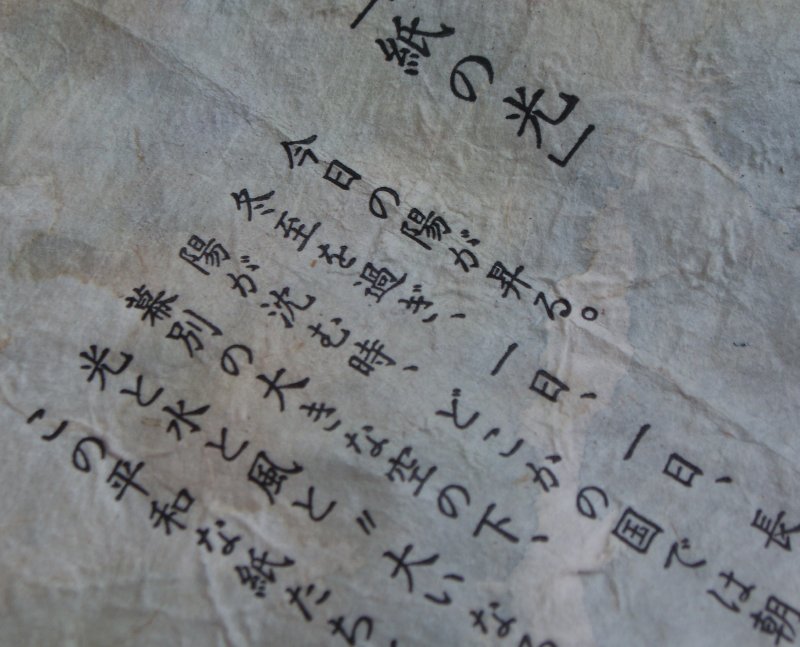 紙の光」
今日の陽が昇る。
冬至を過ぎ、一日、一日、長
陽が沈む時、どこかの国では朝
幕別の大きな空の下、
光と水と風と〝大いなる
この平和な紙たち、